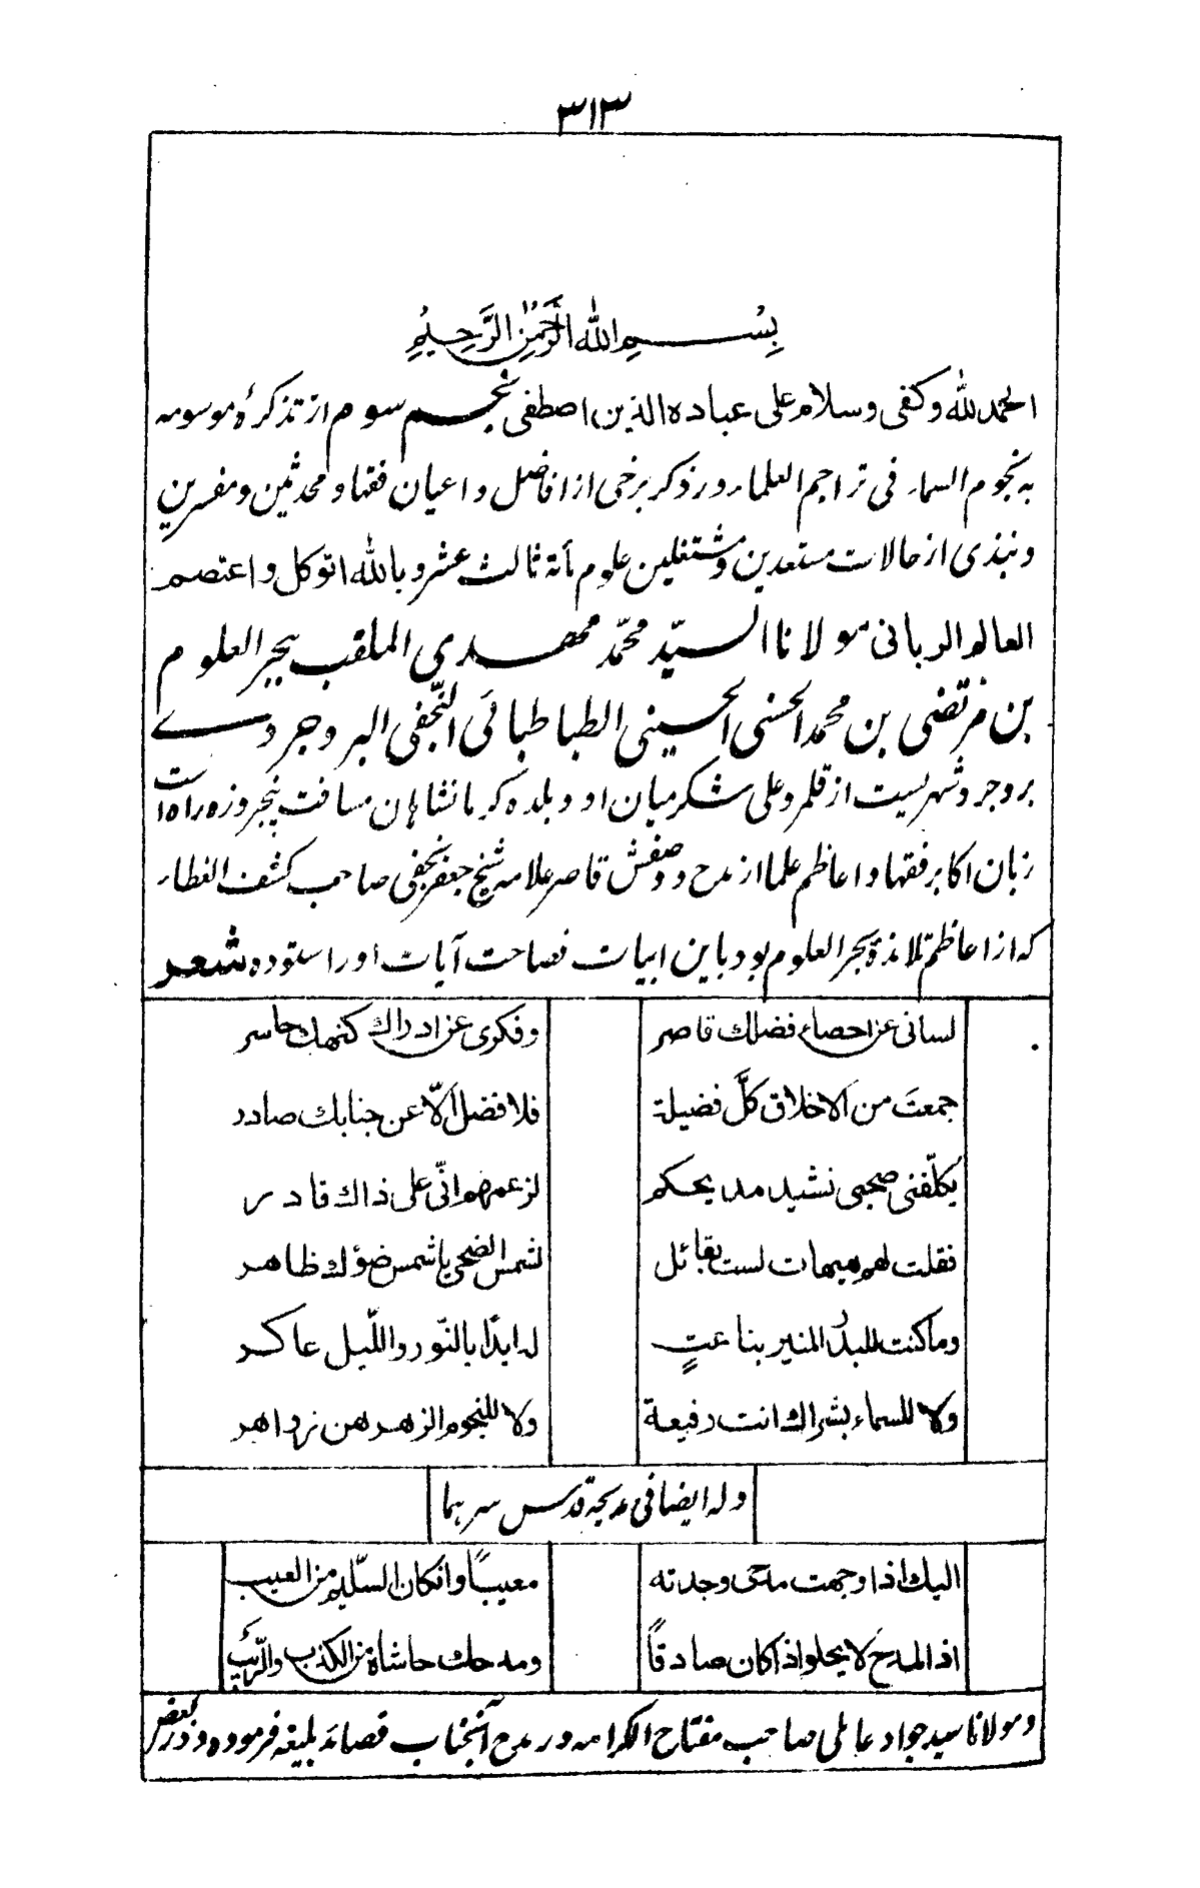 ۳۱۳
بِسْمِ اللّٰهِ الرَّحْمٰنِ الرَّحِيْمِ
الحمد لله وكفى وسلام على عباده الذين اصطفى نجم سوم از تذكرهٔ موسومه
به نجوم السماء فى تراجم العلماء در ذكر برخى از افاضل و اعيان فقها و محدثين و مفسرين
و نبذى از حالات مستعدين و مشتغلين علوم مأة ثالث عشر و بالله اتوكل و اعتصم
العالم الربانى مولانا السيّد محمّد مهدى الملقب ببحر العلوم
بن مرتضى بن محمد الحسنى الحسينى الطباطبائى النّجفى البروجردے
بروجرد شهريست از قلمرو على شكر ميان او و بلده كرمانشاهان مسافت پنجروزه راه است
زبان اكابر فقها و اعاظم علما از مدح و وصفش قاصر علامه شيخ جعفر نجفى صاحب كشف الغطاء
كه از اعاظم تلامذهٔ بحر العلوم بود باين ابيات فصاحت آيات او را ستوده شعر
لسانى عن احصاء فضلك قاصر وفكرى عن ادراك كنهك حاسر
جمعتَ من الاخلاق كلَّ فضيلة فلا فضل الّا عن جنابك صادر
يكلّفنى صحبى نشيد مديحكم لزعمهم انّى على ذاك قادر
فقلت لهم هيهات لست بقائل لشمس الضحى يا شمس ضوؤك ظاهر
وما كنت للبدر المنير بناعتٍ له ابدًا بالنّور والليل عاكر
ولا للسماء بشراك انت رفيعة ولا للنجوم الزهر هن زواهر
وله ايضا فى مديحه قدس سرهما
اليك اذا وجهت مدحى وجدته معيبًا وانكان السّليم من العيب
اذ المدح لا يحلو اذا كان صادقًا ومدحك حاشاه من الكذب والرّيب
و مولانا سيد جواد عاملى صاحب مفتاح الكرامه در مدح آنجناب قصائد بليغه فرموده و در بعض